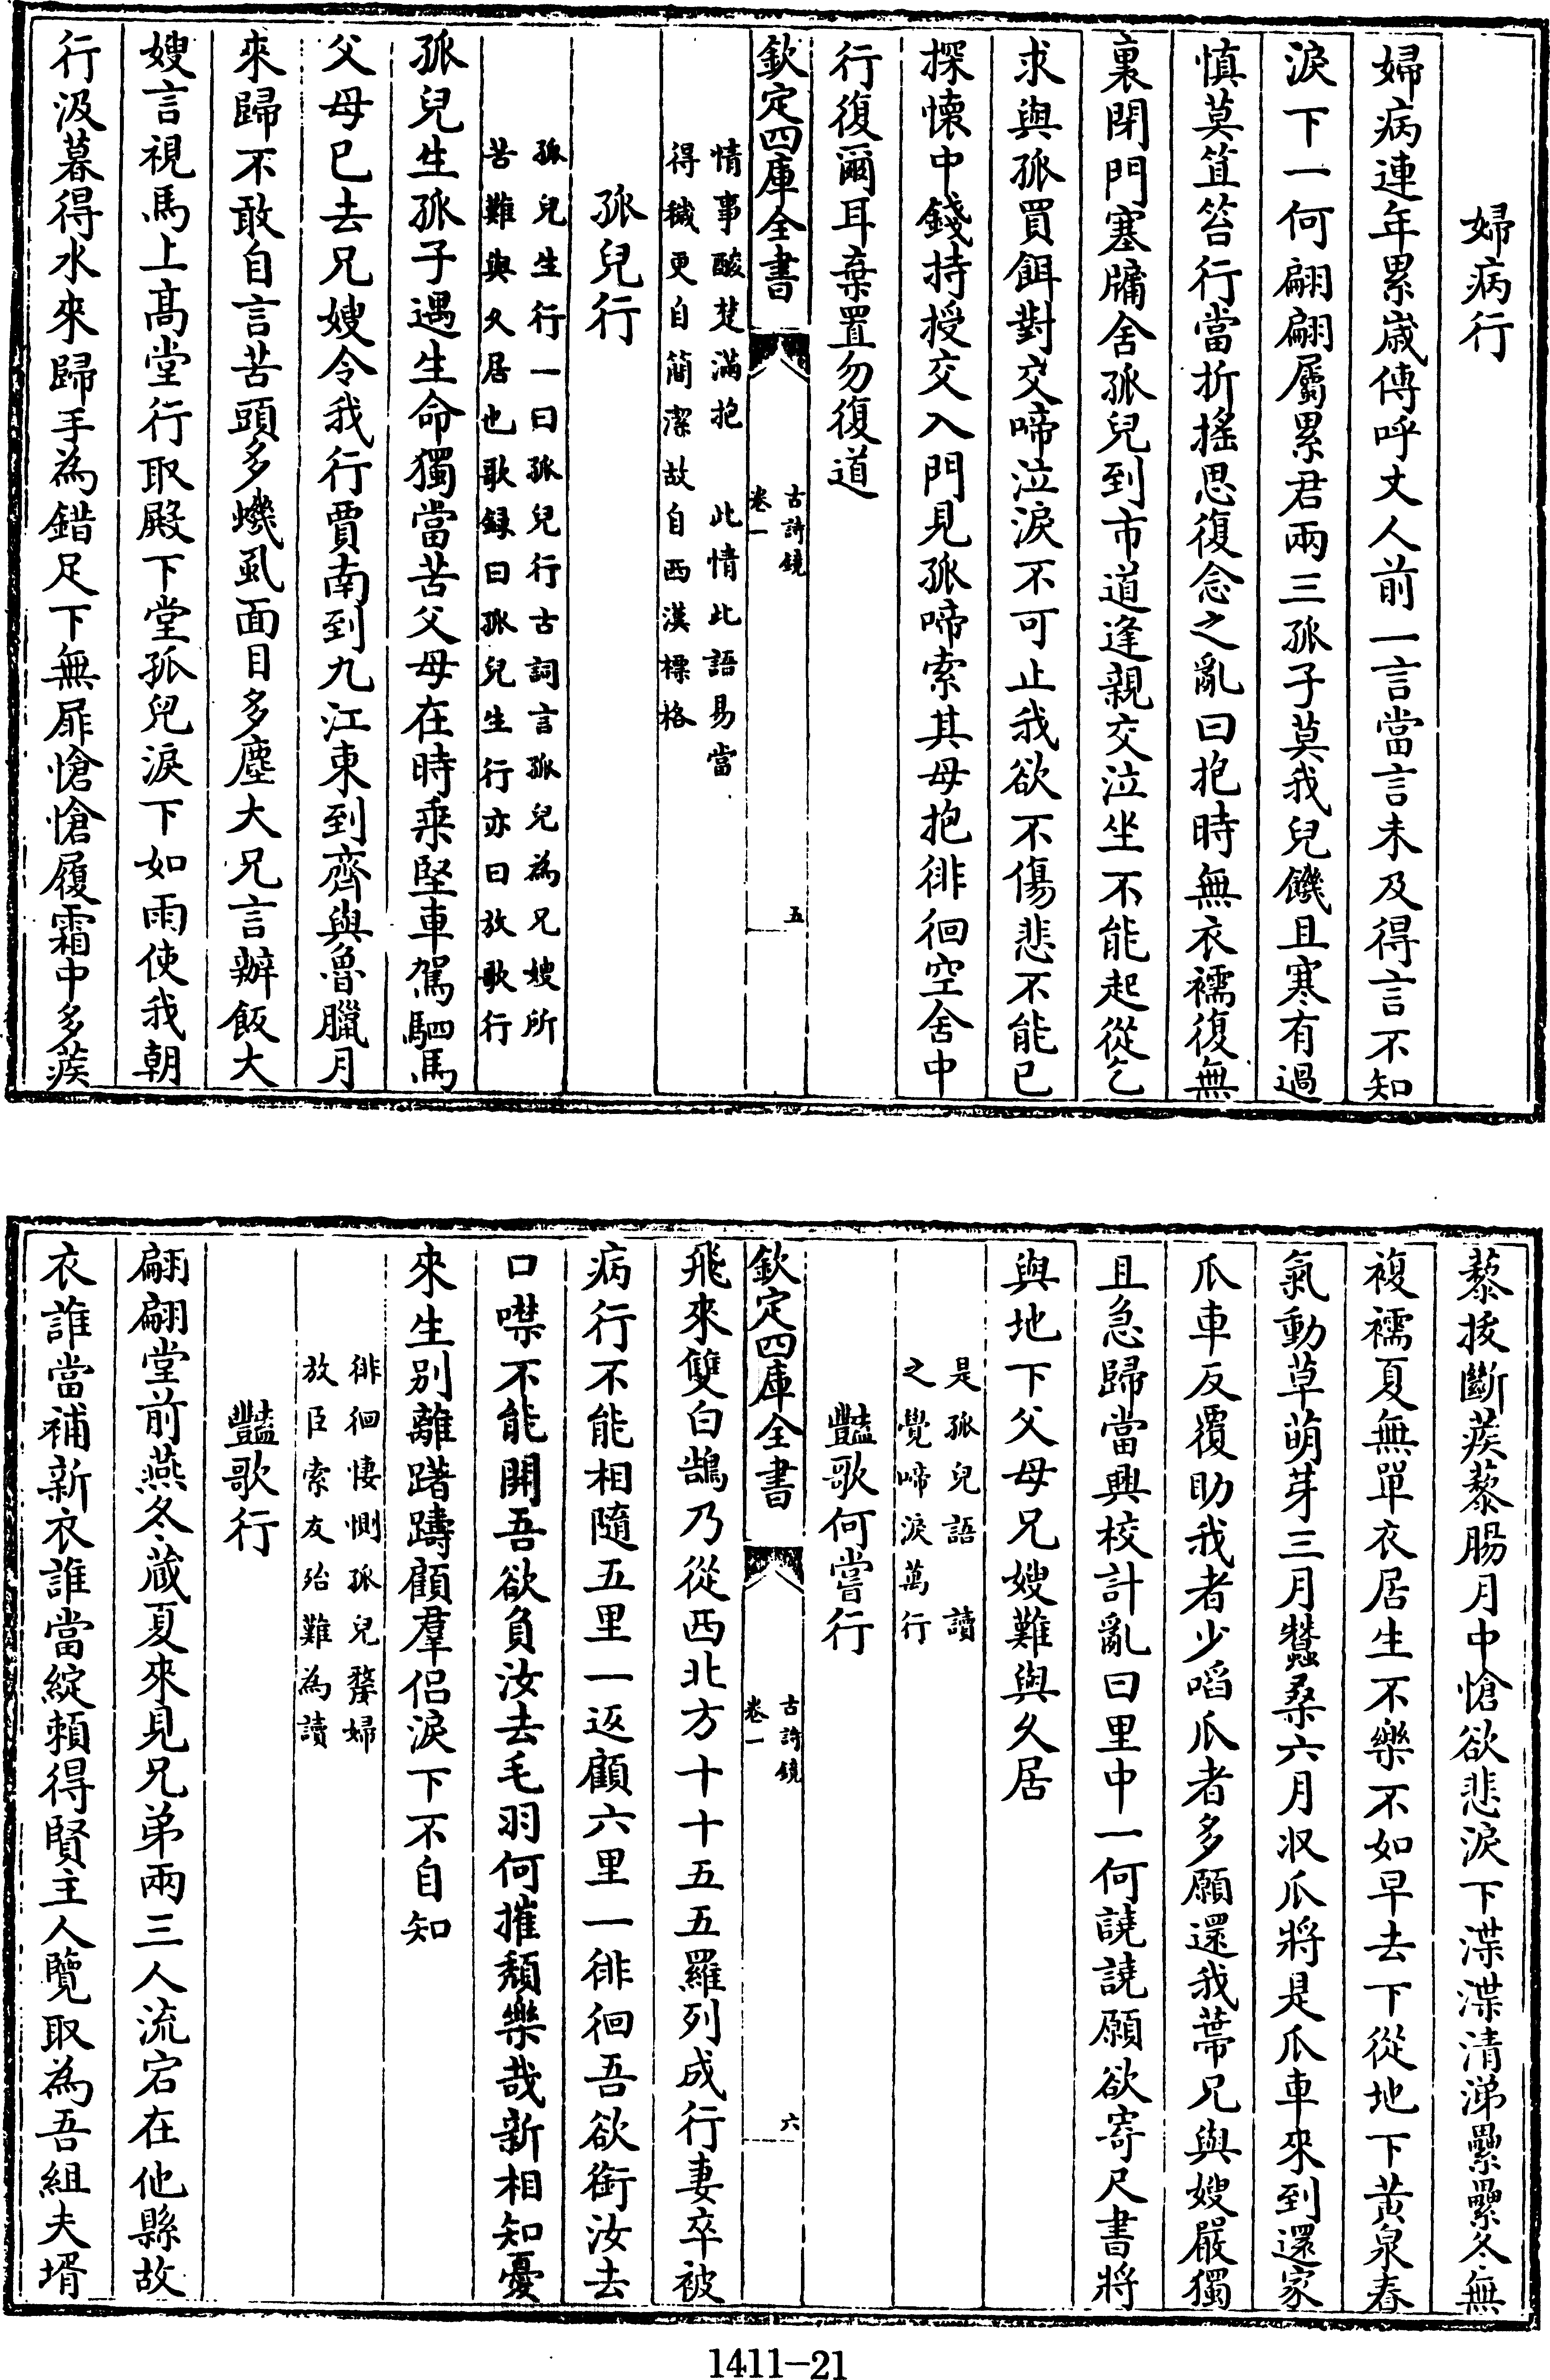 婦病行
婦病連年累歲傳呼丈人前一言當言未及得言不知
淚下一何翩翩屬累君兩三孤子莫我兒饑且寒有過
慎莫笡笞行當折搖思復念之亂曰抱時無衣襦復無
裏閉門塞牖舍孤兒到市道逢親交泣坐不能起從乞
求與孤買餌對交啼泣淚不可止我欲不傷悲不能已
探懷中錢持授交入門見孤啼索其母抱徘徊空舍中
行復爾耳棄置勿復道
欽定四庫全書
古詩鏡
卷一
五
情事酸楚滿抱 此情此語易當
得穢更自簡潔故自西漢標格
孤兒行
孤兒生行一曰孤兒行古詞言孤兒為兄嫂所
苦難與久居也歌録曰孤兒生行亦曰放歌行
孤兒生孤子遇生命獨當苦父母在時乗堅車駕駟馬
父母已去兄嫂令我行賈南到九江東到齊與魯臘月
來歸不敢自言苦頭多蟣虱面目多塵大兄言辦飯大
嫂言視馬上髙堂行取殿下堂孤兒淚下如雨使我朝
行汲暮得水來歸手為錯足下無屝愴愴履霜中多蒺
藜拔斷蒺藜腸月中愴欲悲淚下渫渫清涕纍纍冬無
複襦夏無單衣居生不樂不如早去下從地下黃泉春
氣動草萌芽三月蠶桑六月收瓜將是瓜車來到還家
瓜車反覆助我者少啗瓜者多願還我蔕兄與嫂嚴獨
且急歸當興校計亂曰里中一何譊譊願欲寄尺書將
與地下父母兄嫂難與久居
是孤兒語 讀
之覺啼淚萬行
豔歌何嘗行
欽定四庫全書
古詩鏡
卷一
六
飛來雙白鵠乃從西北方十十五五羅列成行妻卒被
病行不能相隨五里一返顧六里一徘徊吾欲銜汝去
口噤不能開吾欲負汝去毛羽何摧頹樂哉新相知憂
來生別離躇躊顧羣侣淚下不自知
徘徊悽惻孤兒嫠婦
放臣索友殆難為讀
豔歌行
翩翩堂前燕冬藏夏來見兄弟兩三人流宕在他縣故
衣誰當補新衣誰當綻賴得賢主人覽取為吾組夫壻
1411-21